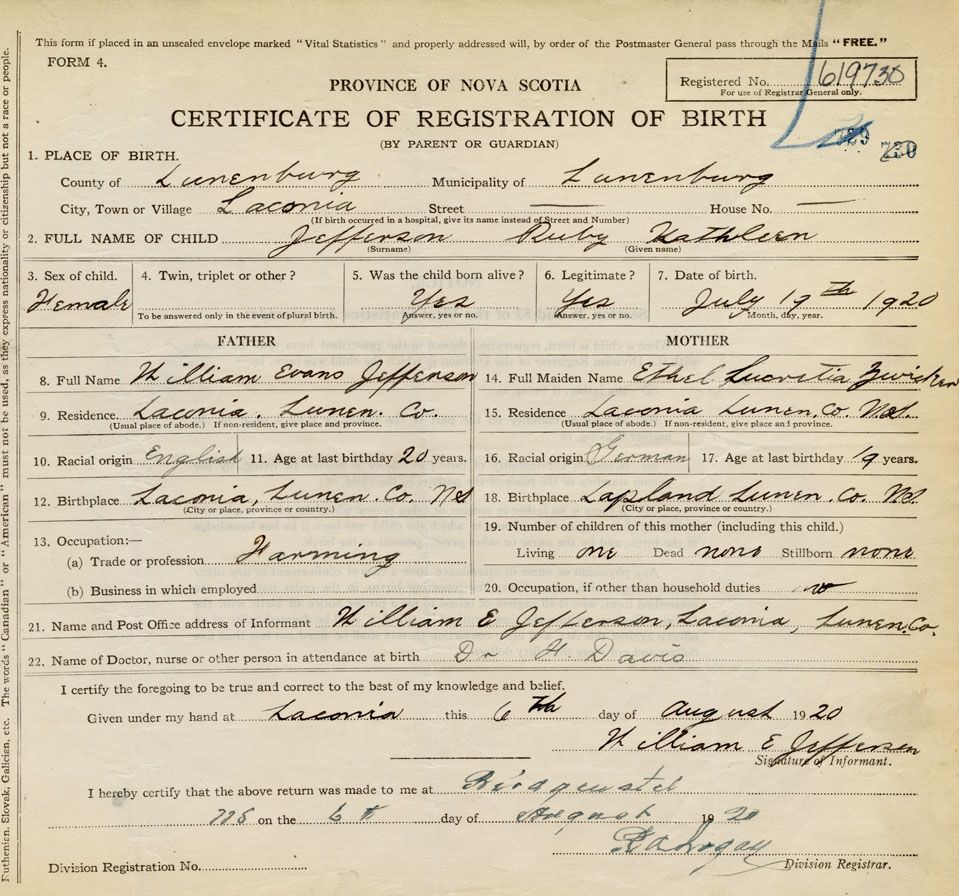 This form if placed in an unsealed envelope marked "Vital Statistics" and properly addressed will, by order of the Postmaster General pass through the Mails "FREE."
FORM 4.
Registered No. 619730
For use of Registrar General only.
PROVINCE OF NOVA SCOTIA
CERTIFICATE OF REGISTRATION OF BIRTH
(BY PARENT OR GUARDIAN)
729
730
1. PLACE OF BIRTH.
County of Lunenburg Municipality of Lunenburg
City, Town or Village Laconia Street — House No. —
(If birth occurred in a hospital, give its name instead of Street and Number)
2. FULL NAME OF CHILD Jefferson Ruby Kathleen
(Surname) (Given name)
3. Sex of child. 4. Twin, triplet or other? 5. Was the child born alive? 6. Legitimate? 7. Date of birth.
Female Yes Yes July 17th 1920
To be answered only in the event of plural birth. Answer, yes or no. Answer, yes or no. Month, day, year.
FATHER MOTHER
8. Full Name William Evans Jefferson 14. Full Maiden Name Ethel Lucretia Zwicker
9. Residence Laconia, Lunen. Co. 15. Residence Laconia Lunen. Co. N.S.
(Usual place of abode.) If non-resident, give place and province. (Usual place of abode.) If non-resident, give place and province.
10. Racial origin English 11. Age at last birthday 20 years. 16. Racial origin German 17. Age at last birthday 19 years.
12. Birthplace Laconia, Lunen. Co. NS 18. Birthplace Lapland Lunen. Co. N.S.
(City or place, province or country.) (City or place, province or country.)
13. Occupation:— 19. Number of children of this mother (including this child.)
(a) Trade or profession Farming Living one Dead none Stillborn none
(b) Business in which employed 20. Occupation, if other than household duties no
21. Name and Post Office address of Informant William E Jefferson, Laconia, Lunen. Co.
22. Name of Doctor, nurse or other person in attendance at birth Dr H. Davis
I certify the foregoing to be true and correct to the best of my knowledge and belief.
Given under my hand at Laconia this 6th day of August 1920
William E Jefferson
Signature of Informant.
I hereby certify that the above return was made to me at Bridgewater
on the 6th day of August 1920
Division Registrar.
Division Registration No.
Ruthenian, Slovak, Galician, etc. The words "Canadian" or "American" must not be used, as they express nationality or citizenship but not a race or people.